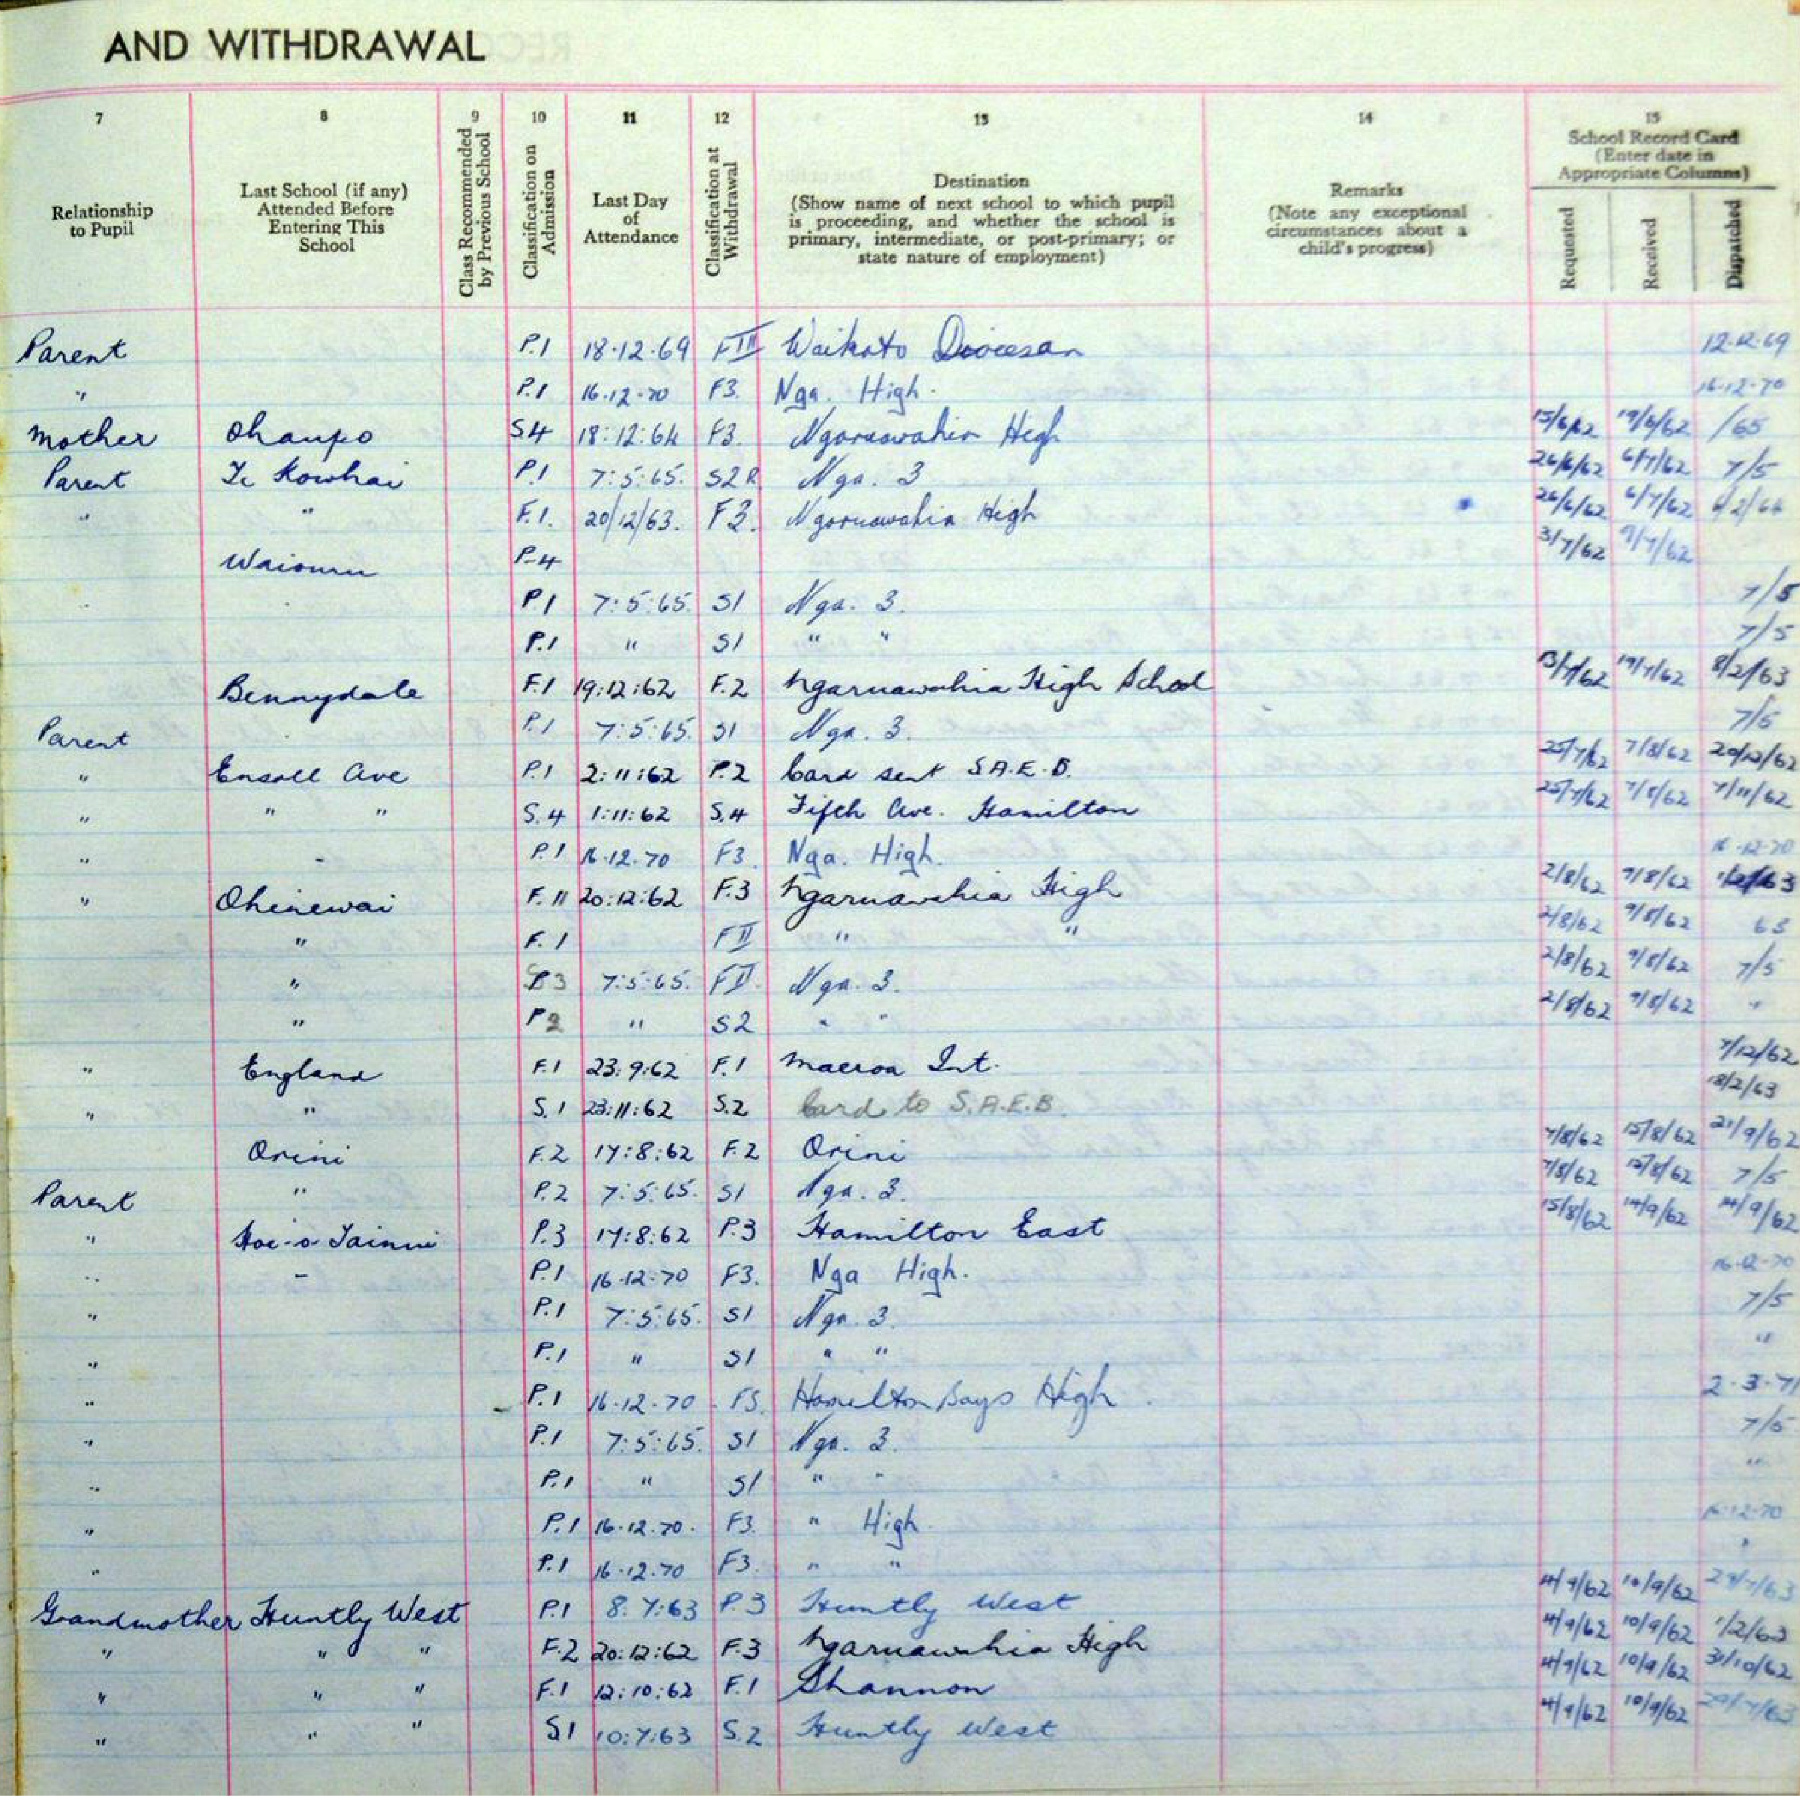 AND WITHDRAWAL
7 8 9 10 11 12 13 14 15
Relationship to Pupil
Last School (if any) Attended Before Entering This School
Class Recommended by Previous School
Classification on Admission
Last Day of Attendance
Classification at Withdrawal
Destination
(Show name of next school to which pupil
is proceeding, and whether the school is
primary, intermediate, or post-primary; or
state nature of employment)
Remarks
(Note any exceptional
circumstances about a
child's progress)
School Record Card
(Enter date in
Appropriate Columns)
Requested Received Dispatched
Parent P.1 18·12·69 FIII Waikato Diocesan 12·12·69
" P.1 16·12·70 F3. Nga. High. 16·12·70
Mother Ohaupo S4 18:12:64 F3. Ngaruawahia High 15/6/62 19/6/62 /65
Parent Te Kowhai P.1 7:5:65. S2R Nga. 3 26/6/62 6/7/62 7/5
" " F.1. 20/12/63. F3. Ngaruawahia High 26/6/62 6/7/62 /2/64
Waiouru P.4 3/7/62 9/7/62
" P.1 7:5:65. S1 Nga. 3. 7/5
P.1 " S1 " " 7/5
Bennydale F.1 19:12:62 F.2 Ngaruawahia High School 13/7/62 19/7/62 8/2/63
Parent P.1 7:5:65. S1 Nga. 3. 7/5
" Ensall Ave P.1 2:11:62 P.2 Card sent S.A.E.B. 25/7/62 7/8/62 20/12/62
" " " S.4 1:11:62 S.4 Fifth Ave. Hamilton 25/7/62 7/8/62 7/11/62
" - P.1 16·12·70 F3. Nga. High. 16·12·70
" Ohinewai F.II 20:12:62 F.3 Ngaruawahia High 2/8/62 9/8/62 1/2/63
" F.1 FII " " 2/8/62 9/8/62 63
" P3 7:5:65. FI. Nga. 3. 2/8/62 9/8/62 7/5
" P2 " S2 " " 2/8/62 9/8/62 "
" England F.1 23:9:62 F.1 Maeroa Int. 7/12/62
" " S.1 23:11:62 S.2 Card to S.A.E.B. 18/2/63
Orini F.2 17:8:62 F.2 Orini 7/8/62 15/8/62 21/9/62
Parent " P.2 7:5:65. S1 Nga. 3. 7/8/62 15/8/62 7/5
" Hoe-o-Tainui P.3 17:8:62 P.3 Hamilton East 15/8/62 14/9/62 14/9/62
" - P.1 16·12·70 F3. Nga High. 16·12·70
" P.1 7:5:65. S1 Nga. 3. 7/5
" P.1 " S1 " " "
" P.1 16·12·70 F3. Hamilton Boys High. 2·3·71
" P.1 7:5:65. S1 Nga. 3. 7/5
" P.1 " S1 " " "
" P.1 16·12·70. F3. " High. 16·12·70
" P.1 16·12·70 F3. " " "
Grandmother Huntly West P.1 8:7:63 P.3 Huntly West 4/9/62 10/9/62 29/7/63
" " " F.2 20:12:62 F.3 Ngaruawahia High 4/9/62 10/9/62 1/2/63
" " " F.1 12:10:62 F.1 Shannon 4/9/62 10/9/62 31/10/62
" " " S1 10:7:63 S.2 Huntly West 4/9/62 10/9/62 29/7/63